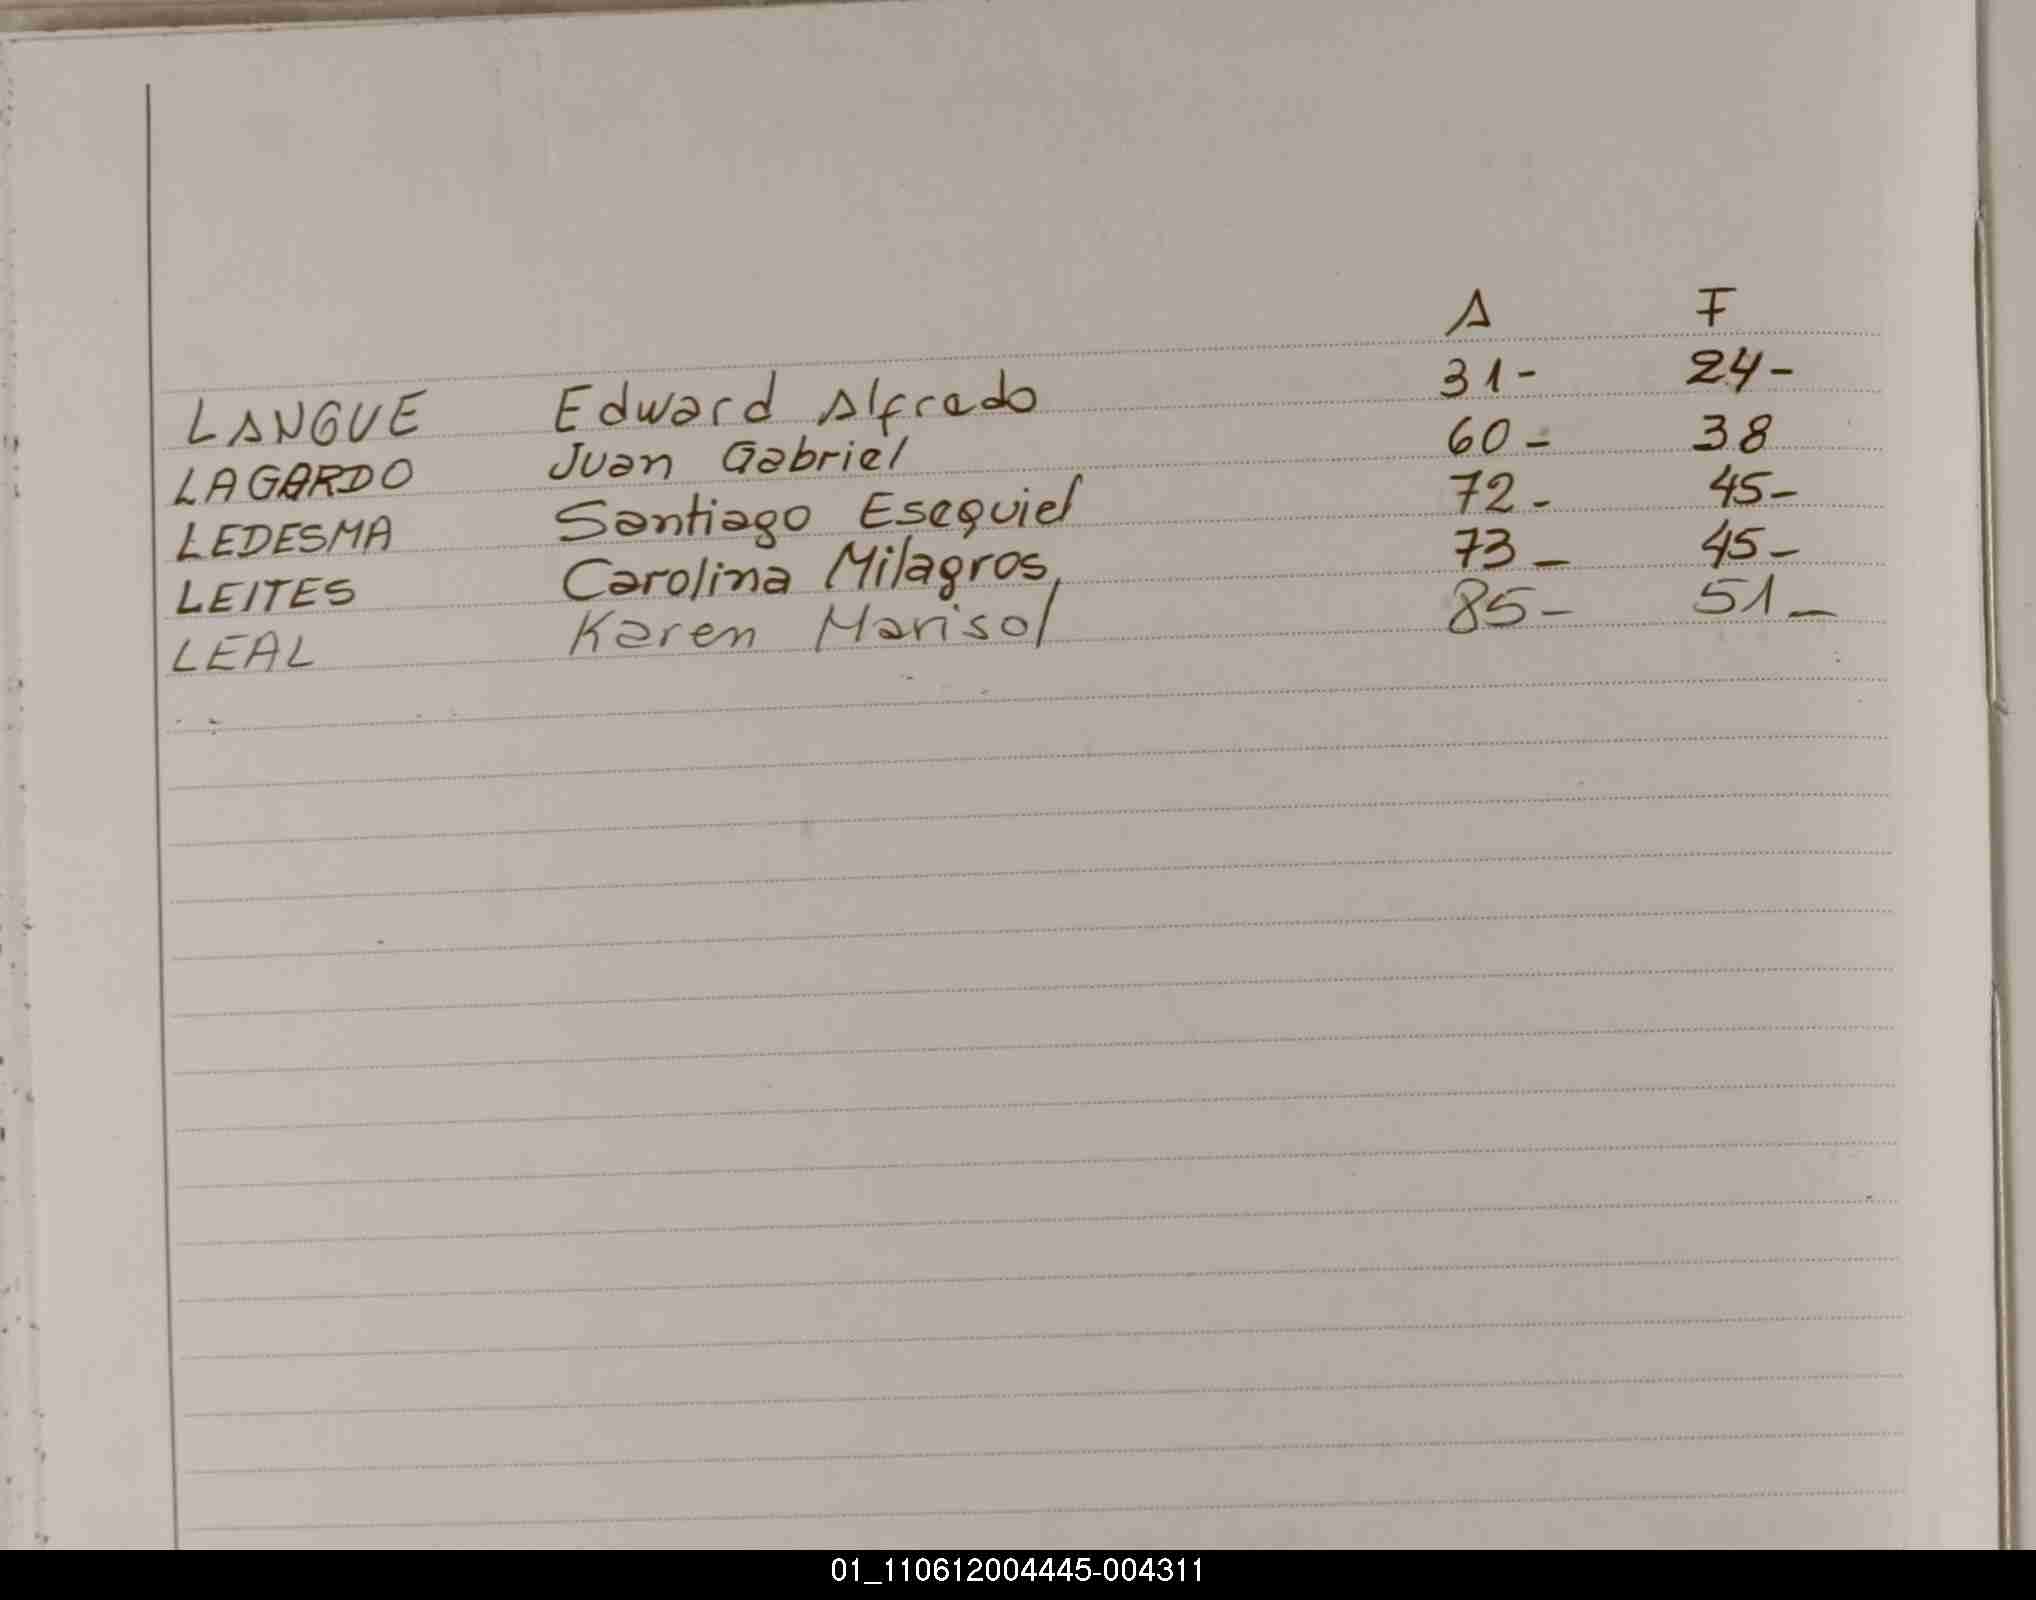 A F
LANGUE Edward Alfredo 31- 24-
LAGARDO Juan Gabriel 60- 38
LEDESMA Santiago Esequiel 72- 45-
LEITES Carolina Milagros, 73- 45-
LEAL Karen Marisol 85- 51-
01_110612004445-004311